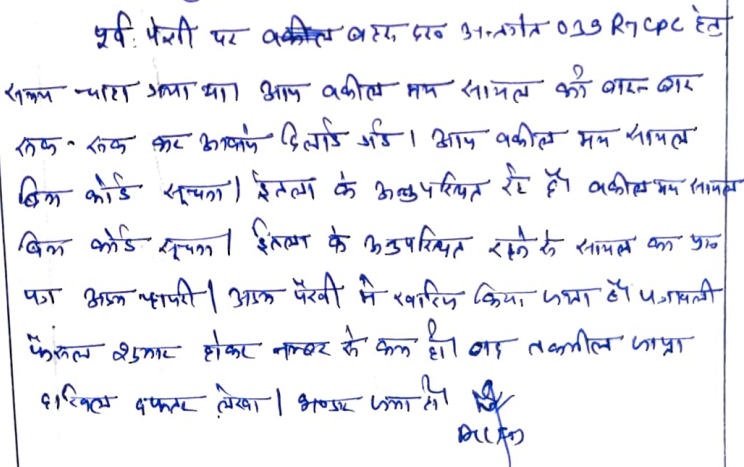 पूर्व पेशी पर वकील बहस दर0 अन्तर्गत 039 R7 CPC हेतु
समय चाहा गया था। आज वकील मय सायल को बार बार
रूक - रूक कर आवाजे दिलाई गई। आज वकील मय सायल
बिना कोई सूचना/ इतला के अनुपस्थित रहे है। वकील मय सायल
बिना कोई सूचना/ इतला के अनुपस्थित रहने से सायल का प्रा0
पत्र अदम हाजरी/ अदम पैरवी में खारिज किया जाता है। पत्रावली
फैसल शुमार होकर नम्बर से कम हो। बाद तकमील जाप्ता
दाखिल दफ्तर लेखा/ भण्डार जमा हो।